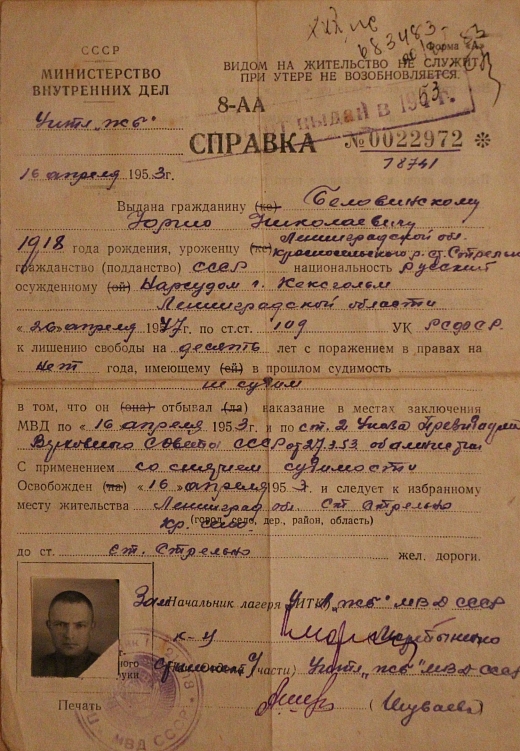 СССР
МИНИСТЕРСТВО
ВНУТРЕННИХ ДЕЛ
Форма „А“
ВИДОМ НА ЖИТЕЛЬСТВО НЕ СЛУЖИТ
ПРИ УТЕРЕ НЕ ВОЗОБНОВЛЯЕТСЯ.
Уитл „ЖЪ“
8-АА
выдан в 1953 г.
СПРАВКА № 0022972 *
18741
16 апреля 1953 г.
Выдана гражданину (ке) Беловинскому
Юрию Николаевичу
1918 года рождения, уроженцу (ке) Ленинградской обл.
Красносельского р. ст. Стрельн
гражданство (подданство) СССР национальность русский
осужденному (ой) Нарсудом г. Кексгольм
Ленинградской области
« 26 » апреля 1947 г. по ст.ст. 109 УК РСФСР
к лишению свободы на десять лет с поражением в правах на
нет года, имеющему (ей) в прошлом судимость
не судим
в том, что он (она) отбывал (ла) наказание в местах заключения
МВД по « 16 апреля 1953 г. и по ст. 2 Указа Президиума
Верховного Совета СССР от 27.3.53 об амнистии
С применением со снятием судимости
Освобожден (на) « 16 » апреля 1953 г. и следует к избранному
месту жительства Ленинград обл. ст Стрельно
Кр. село
(город, село, дер., район, область)
до ст. ст. Стрельно жел. дороги.
Зам Начальник лагеря (ИТК) „ЖЪ“ МВД СССР
части) Уитл „ЖЪ“ МВД СССР
Печать (Шуваев)
МВД СССР